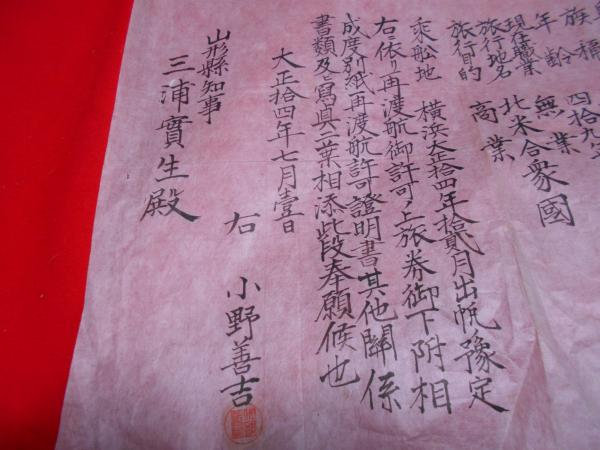 族稱
年齡 四拾九年
現住職業 無業
旅行地名 北米合衆國
旅行目的 商業
乘船地 横浜大正拾四年拾貳月出帆豫定
右ニ依リ再渡航御許可ノ上旅券御下附相
成度別紙再渡航許可證明書其他關係
書類及ヒ寫眞二葉相添此段奉願候也
大正拾四年七月壹日
右 小野善吉
山形縣知事
三浦實生殿